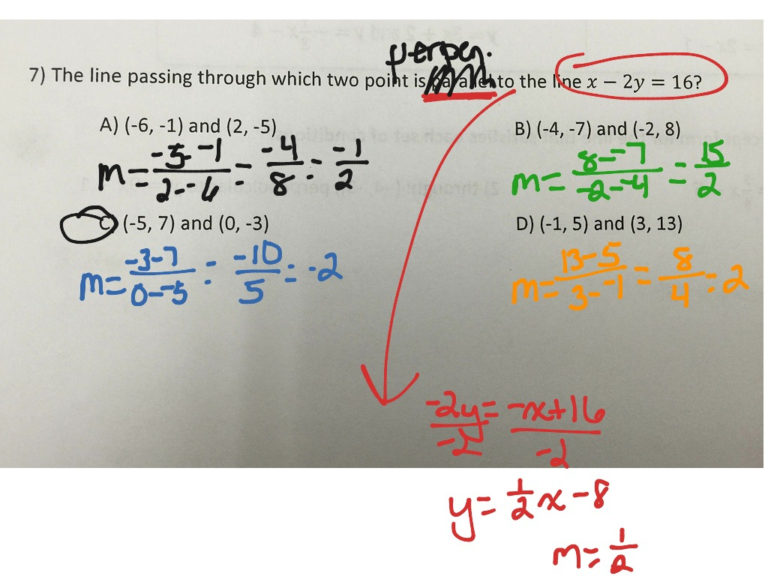 perpen.
7) The line passing through which two point is parallel to the line x − 2y = 16?
A) (-6, -1) and (2, -5)
m= -5--1 / 2--6 = -4/8 = -1/2
B) (-4, -7) and (-2, 8)
m= 8--7 / -2--4 = 15/2
C) (-5, 7) and (0, -3)
m= -3-7 / 0--5 = -10/5 = -2
D) (-1, 5) and (3, 13)
m= 13-5 / 3--1 = 8/4 = 2
-2y = -x+16
-2 -2
y = 1/2 x - 8
m = 1/2